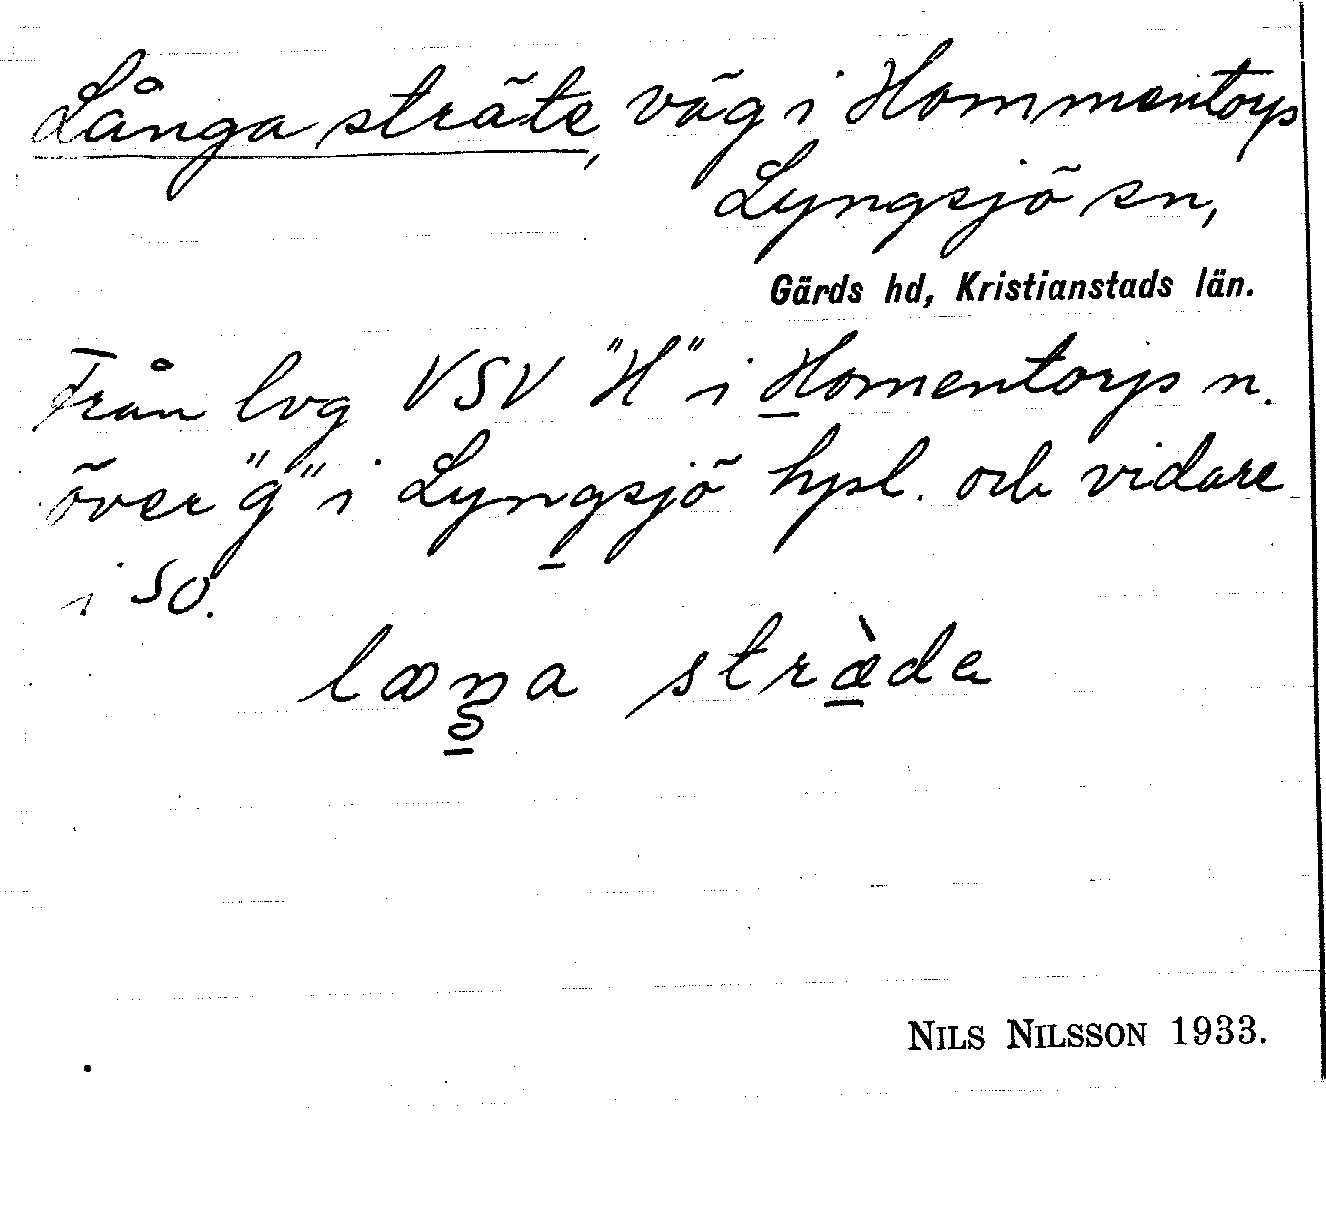 Långa sträte, väg i Hommentorp
Lyngsjö sn,
Gärds hd, Kristianstads län.
Från lvg VSV "H" i Homentorps n.
över "g" i Lyngsjö hpl. och vidare
i SO.
NILS NILSSON 1933.